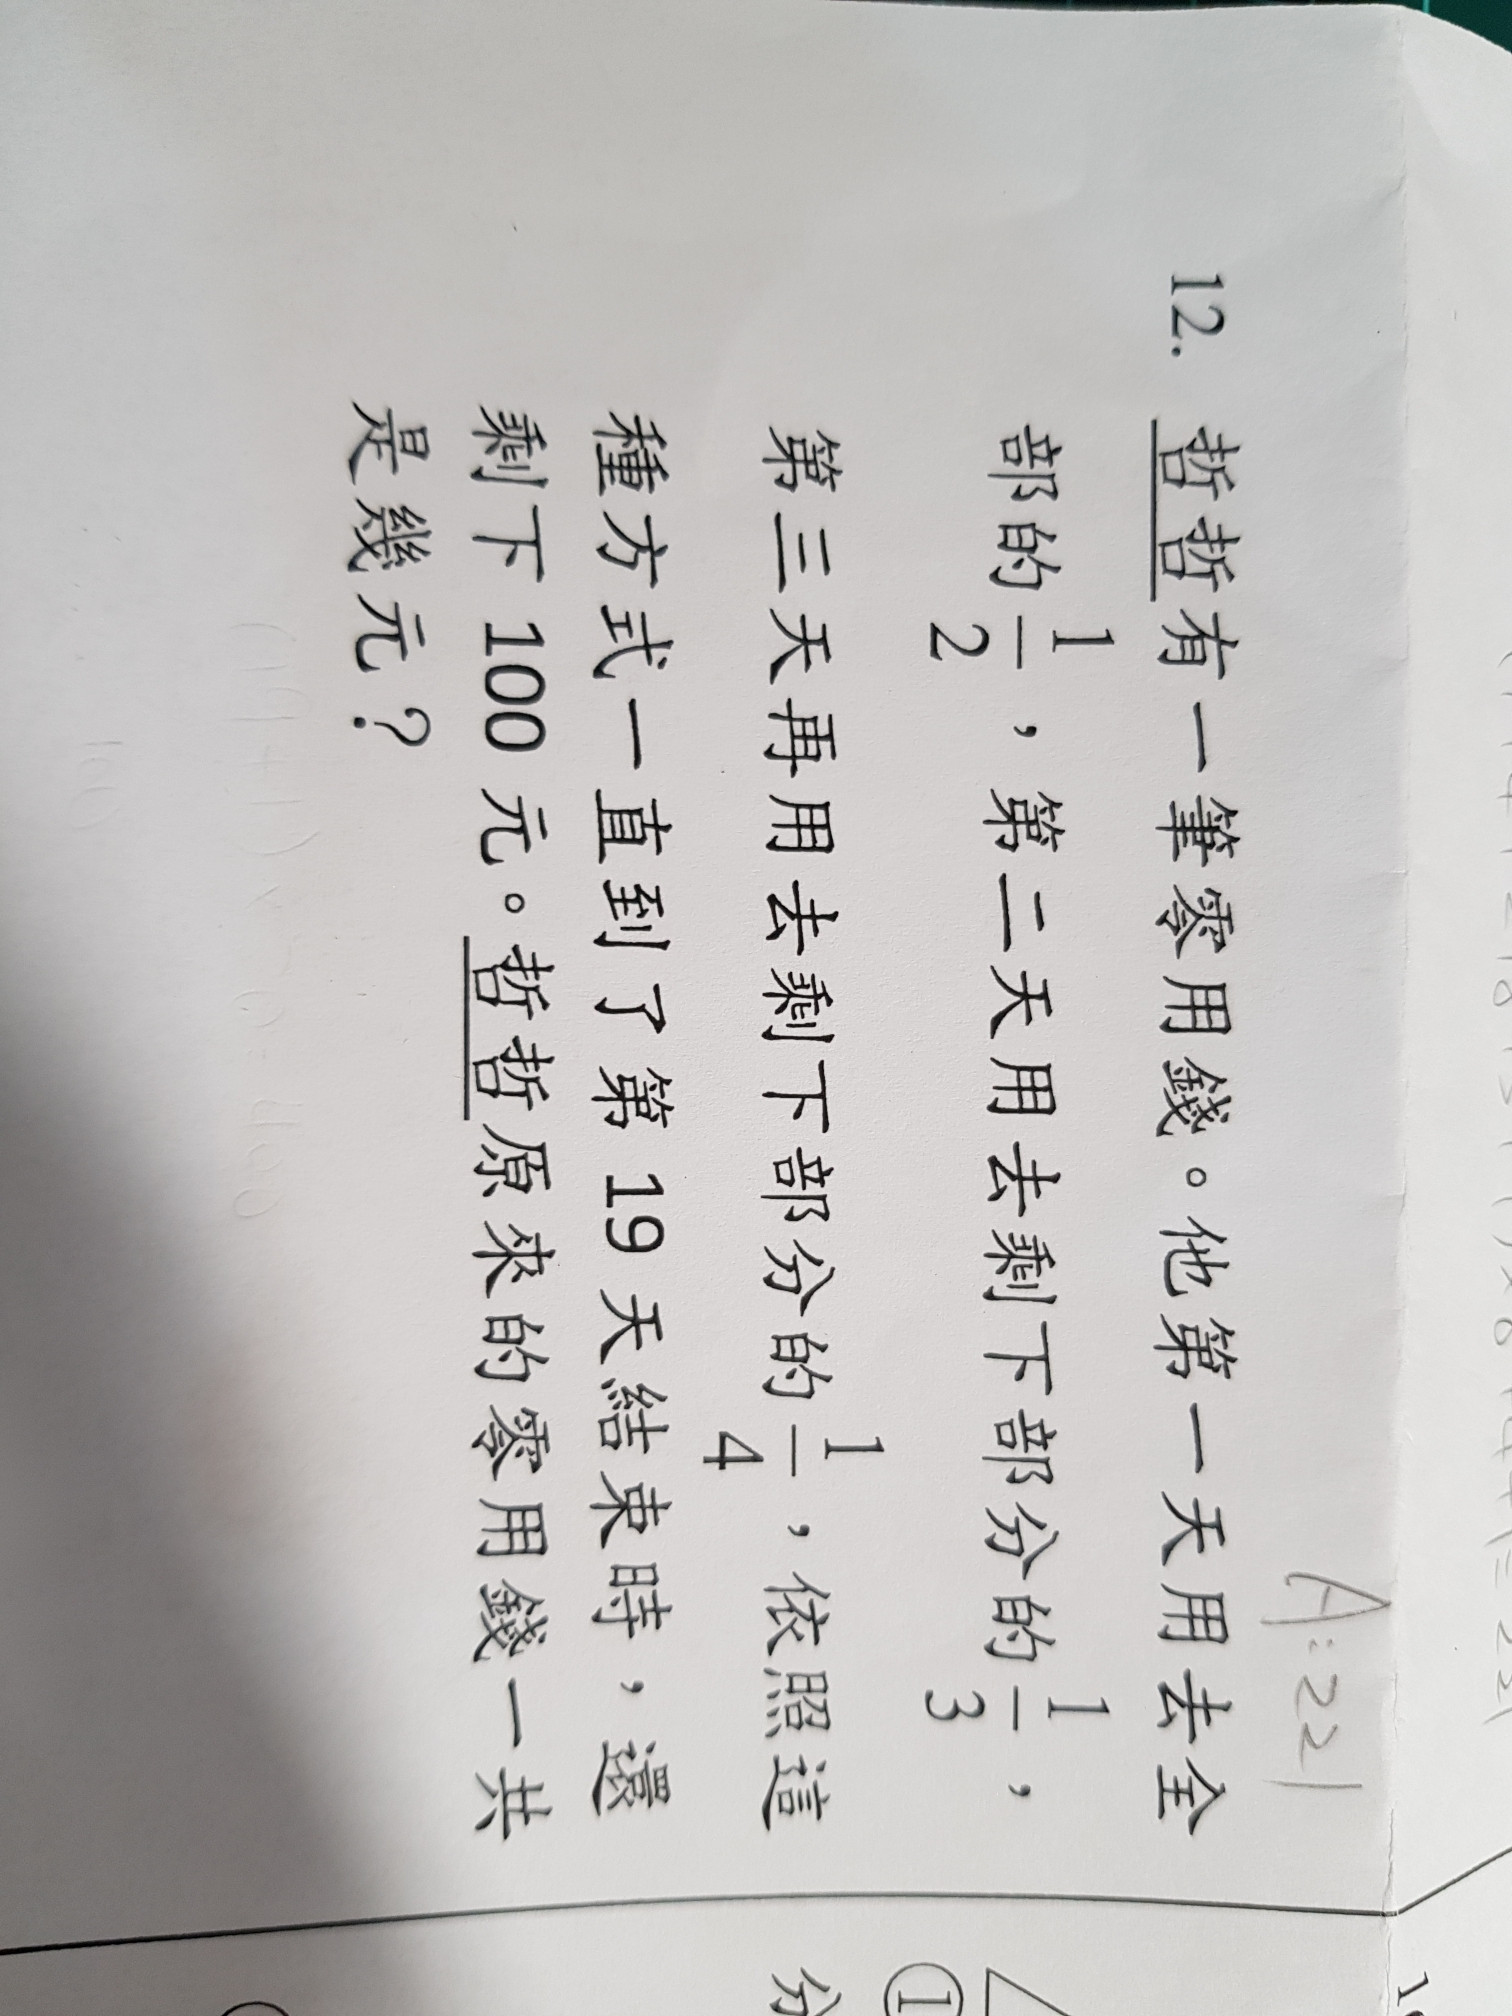 A:221
12. 哲哲有一筆零用錢。他第一天用去全
部的 1/2，第二天用去剩下部分的 1/3，
第三天再用去剩下部分的 1/4，依照這
種方式一直到了第 19 天結束時，還
剩下 100 元。哲哲原來的零用錢一共
是幾元？
①
分